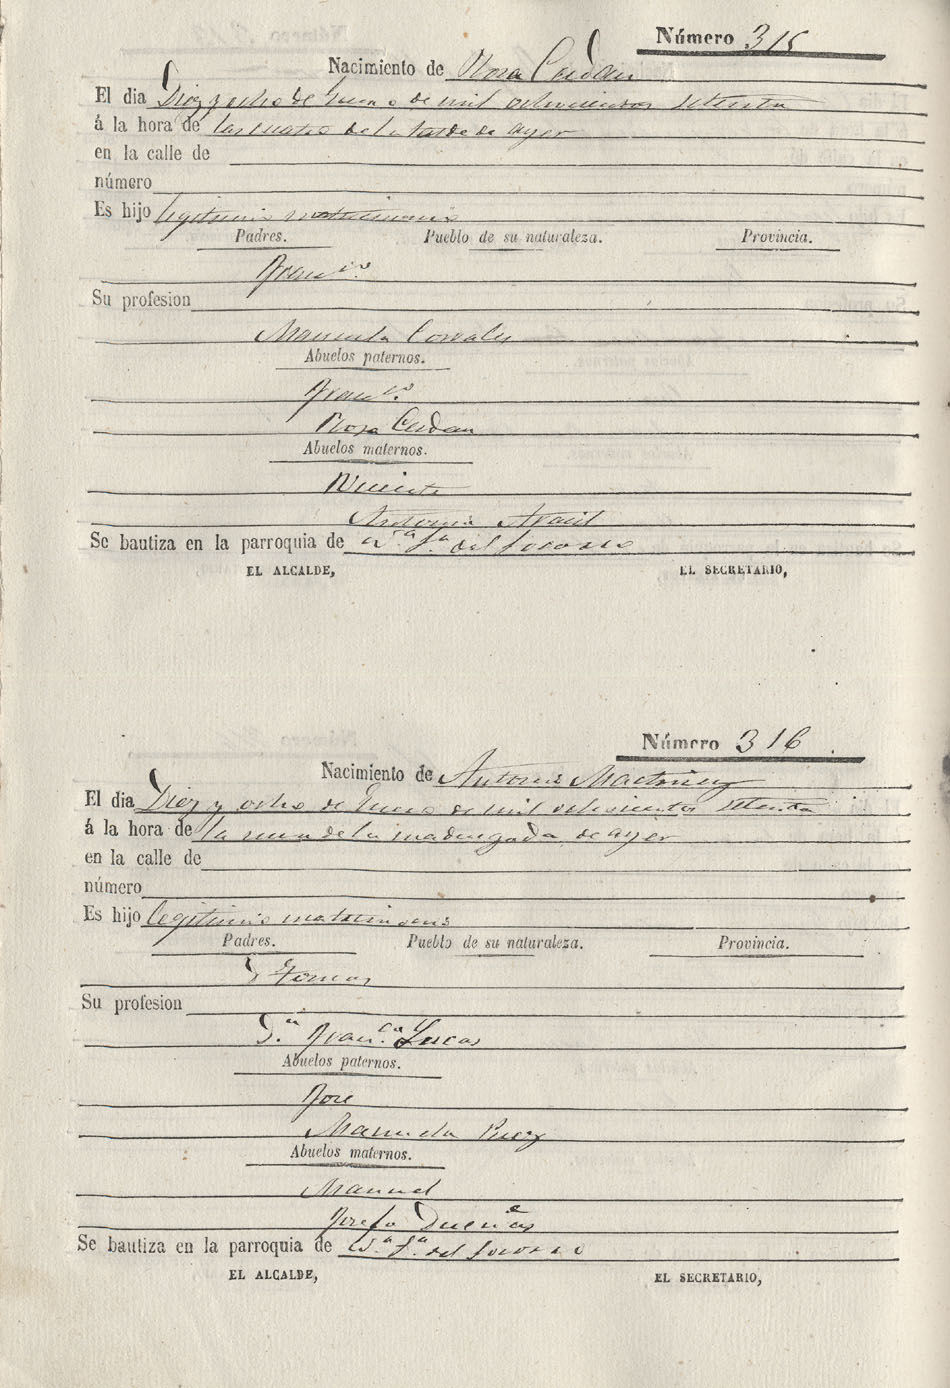 Número 315
Nacimiento de Rosa Cerdan
El dia Diez y ocho de Enero de mil ochocientos setenta
á la hora de las cuatro de la tarde de ayer
en la calle de
número
Es hijo legitimo matrimonio
Padres. Pueblo de su naturaleza. Provincia.
Franco.
Su profesion
Manuela Corrales
Abuelos paternos.
Franco.
Rosa Cerdan
Abuelos maternos.
Vicente
Antonia Aracil
Se bautiza en la parroquia de Na. Sa. del Socorro
EL ALCALDE, EL SECRETARIO,
Número 316
Nacimiento de Antonio Martinez
El dia Diez y ocho de Enero de mil ochocientos setenta
á la hora de la una de la madrugada de ayer
en la calle de
número
Es hijo legitimo matrimonio
Padres. Pueblo de su naturaleza. Provincia.
D Tomas
Su profesion
Da. Franca. Lucas
Abuelos paternos.
Jose
Manuela
Abuelos maternos.
Manuel
Josefa Dueñas
Se bautiza en la parroquia de Na. Sa. del Socorro
EL ALCALDE, EL SECRETARIO,